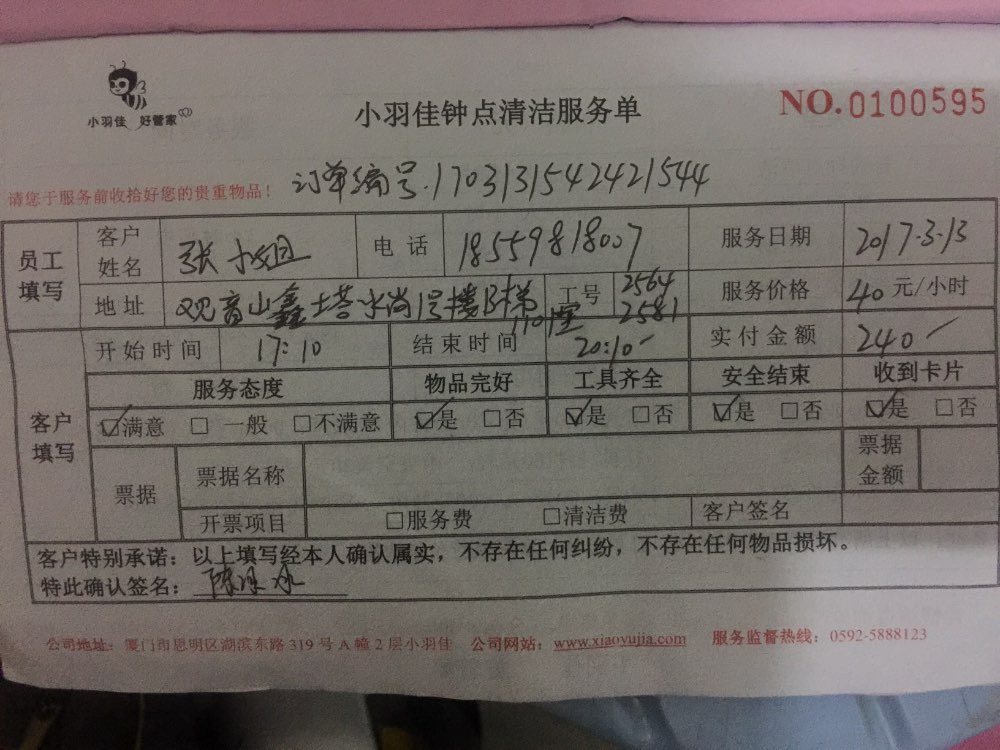 小羽佳 好管家
小羽佳钟点清洁服务单
NO.0100595
订单编号.1703131542421544
请您于服务前收拾好您的贵重物品！
员工填写 客户姓名 张小姐 电话 18559818007 服务日期 2017.3.13
地址 观音山鑫塔水尚1号楼B梯1101室 工号 2564 2581 服务价格 40元/小时
开始时间 17:10 结束时间 20:10 实付金额 240
客户填写 服务态度 物品完好 工具齐全 安全结束 收到卡片
☑满意 □一般 □不满意 ☑是 □否 ☑是 □否 ☑是 □否 ☑是 □否
票据 票据名称 票据金额
开票项目 □服务费 □清洁费 客户签名
客户特别承诺：以上填写经本人确认属实，不存在任何纠纷，不存在任何物品损坏。
特此确认签名：
公司地址：厦门市思明区湖滨东路319号A幢2层小羽佳 公司网站：www.xiaoyujia.com 服务监督热线：0592-5888123